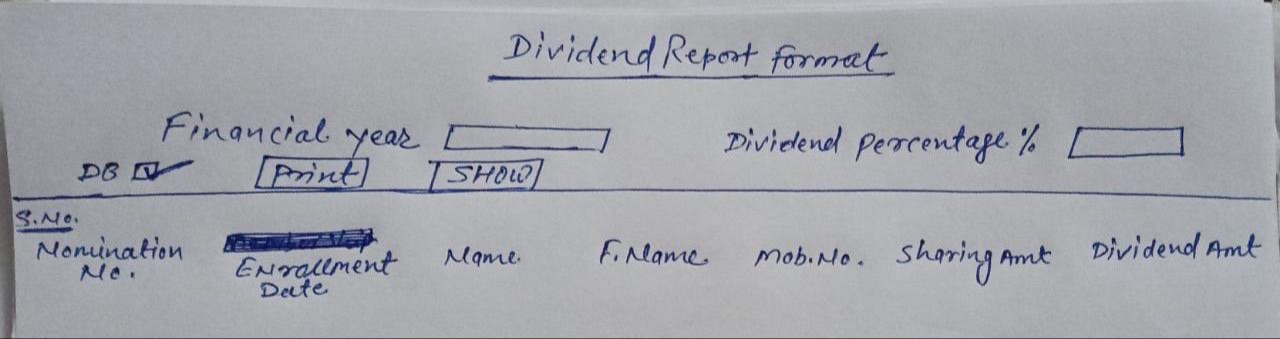 Dividend Report format
Financial year
Dividend percentage %
DB
Print
SHOW
S.No.
Nomination No.
Enrallment Date
Name
F. Name
Mob. No.
Sharing Amt
Dividend Amt